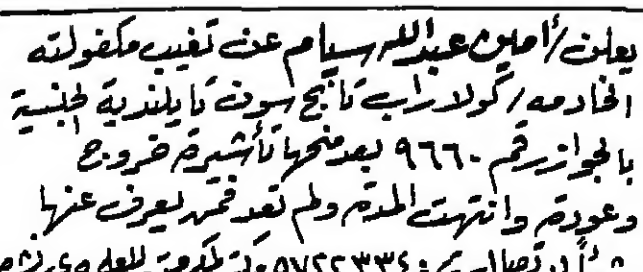 يعلن / أمين عبدالله سيام عن تغيب مكفولته
الخادمه / كولاراب تانج سون تايلندية الجنسية
بالجواز رقم ٩٦٦٠ بعد منحها تأشيرة خروج
وعودة وانتهت المدة ولم تعد فمن يعرف عنها
الاتصال ت: ٥٧٢٢٣٣٤